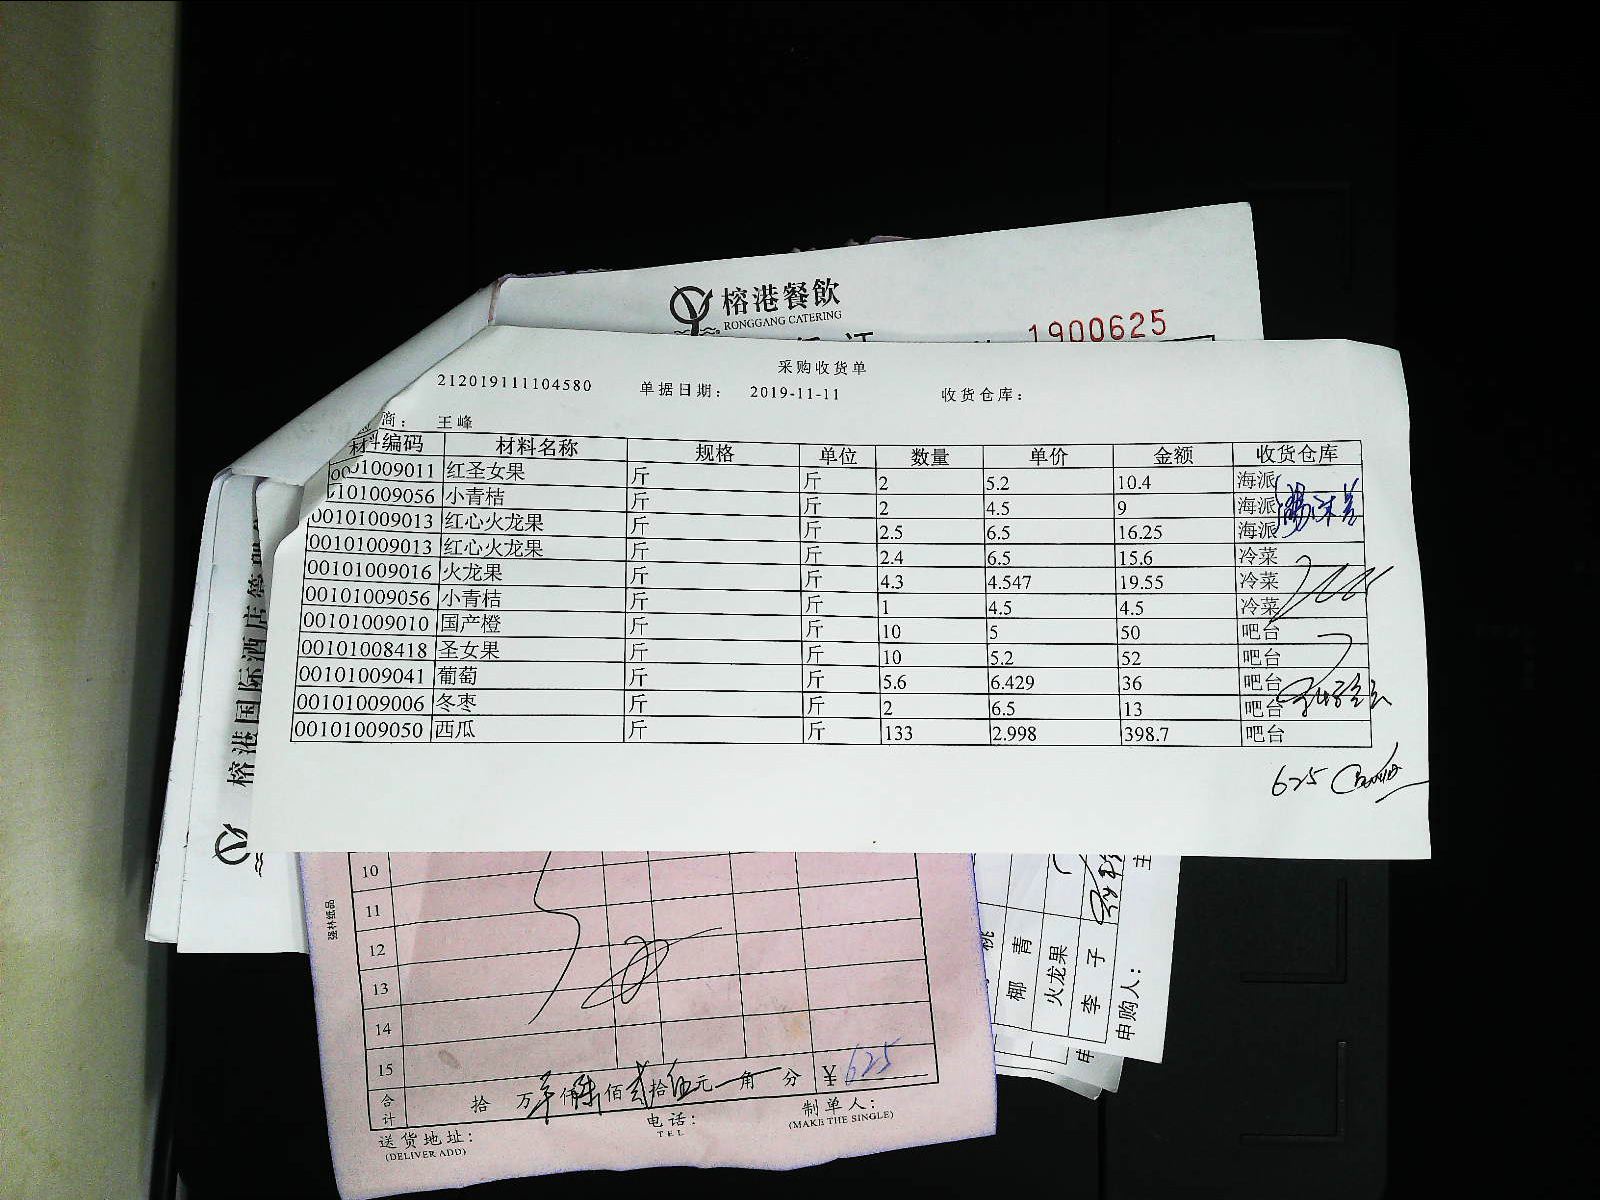 榕港餐飲
RONGGANG CATERING
1900625
采购收货单
212019111104580 单据日期： 2019-11-11 收货仓库：
商： 王峰
材料编码 材料名称 规格 单位 数量 单价 金额 收货仓库
001009011 红圣女果 斤 斤 2 5.2 10.4 海派
101009056 小青桔 斤 斤 2 4.5 9 海派
00101009013 红心火龙果 斤 斤 2.5 6.5 16.25 海派
00101009013 红心火龙果 斤 斤 2.4 6.5 15.6 冷菜
00101009016 火龙果 斤 斤 4.3 4.547 19.55 冷菜
00101009056 小青桔 斤 斤 1 4.5 4.5 冷菜
00101009010 国产橙 斤 斤 10 5 50 吧台
00101008418 圣女果 斤 斤 10 5.2 52 吧台
00101009041 葡萄 斤 斤 5.6 6.429 36 吧台
00101009006 冬枣 斤 斤 2 6.5 13 吧台
00101009050 西瓜 斤 斤 133 2.998 398.7 吧台
625
榕港国际酒店
10
11
12
13
14
15
合计 拾 万 仟 佰 贰 拾 伍 元 角 分 ¥ 625
送货地址：
(DELIVER ADD)
电话：
TEL
制单人：
(MAKE THE SINGLE)
强林纸品
桃
椰青
火龙果
李子
申购人：